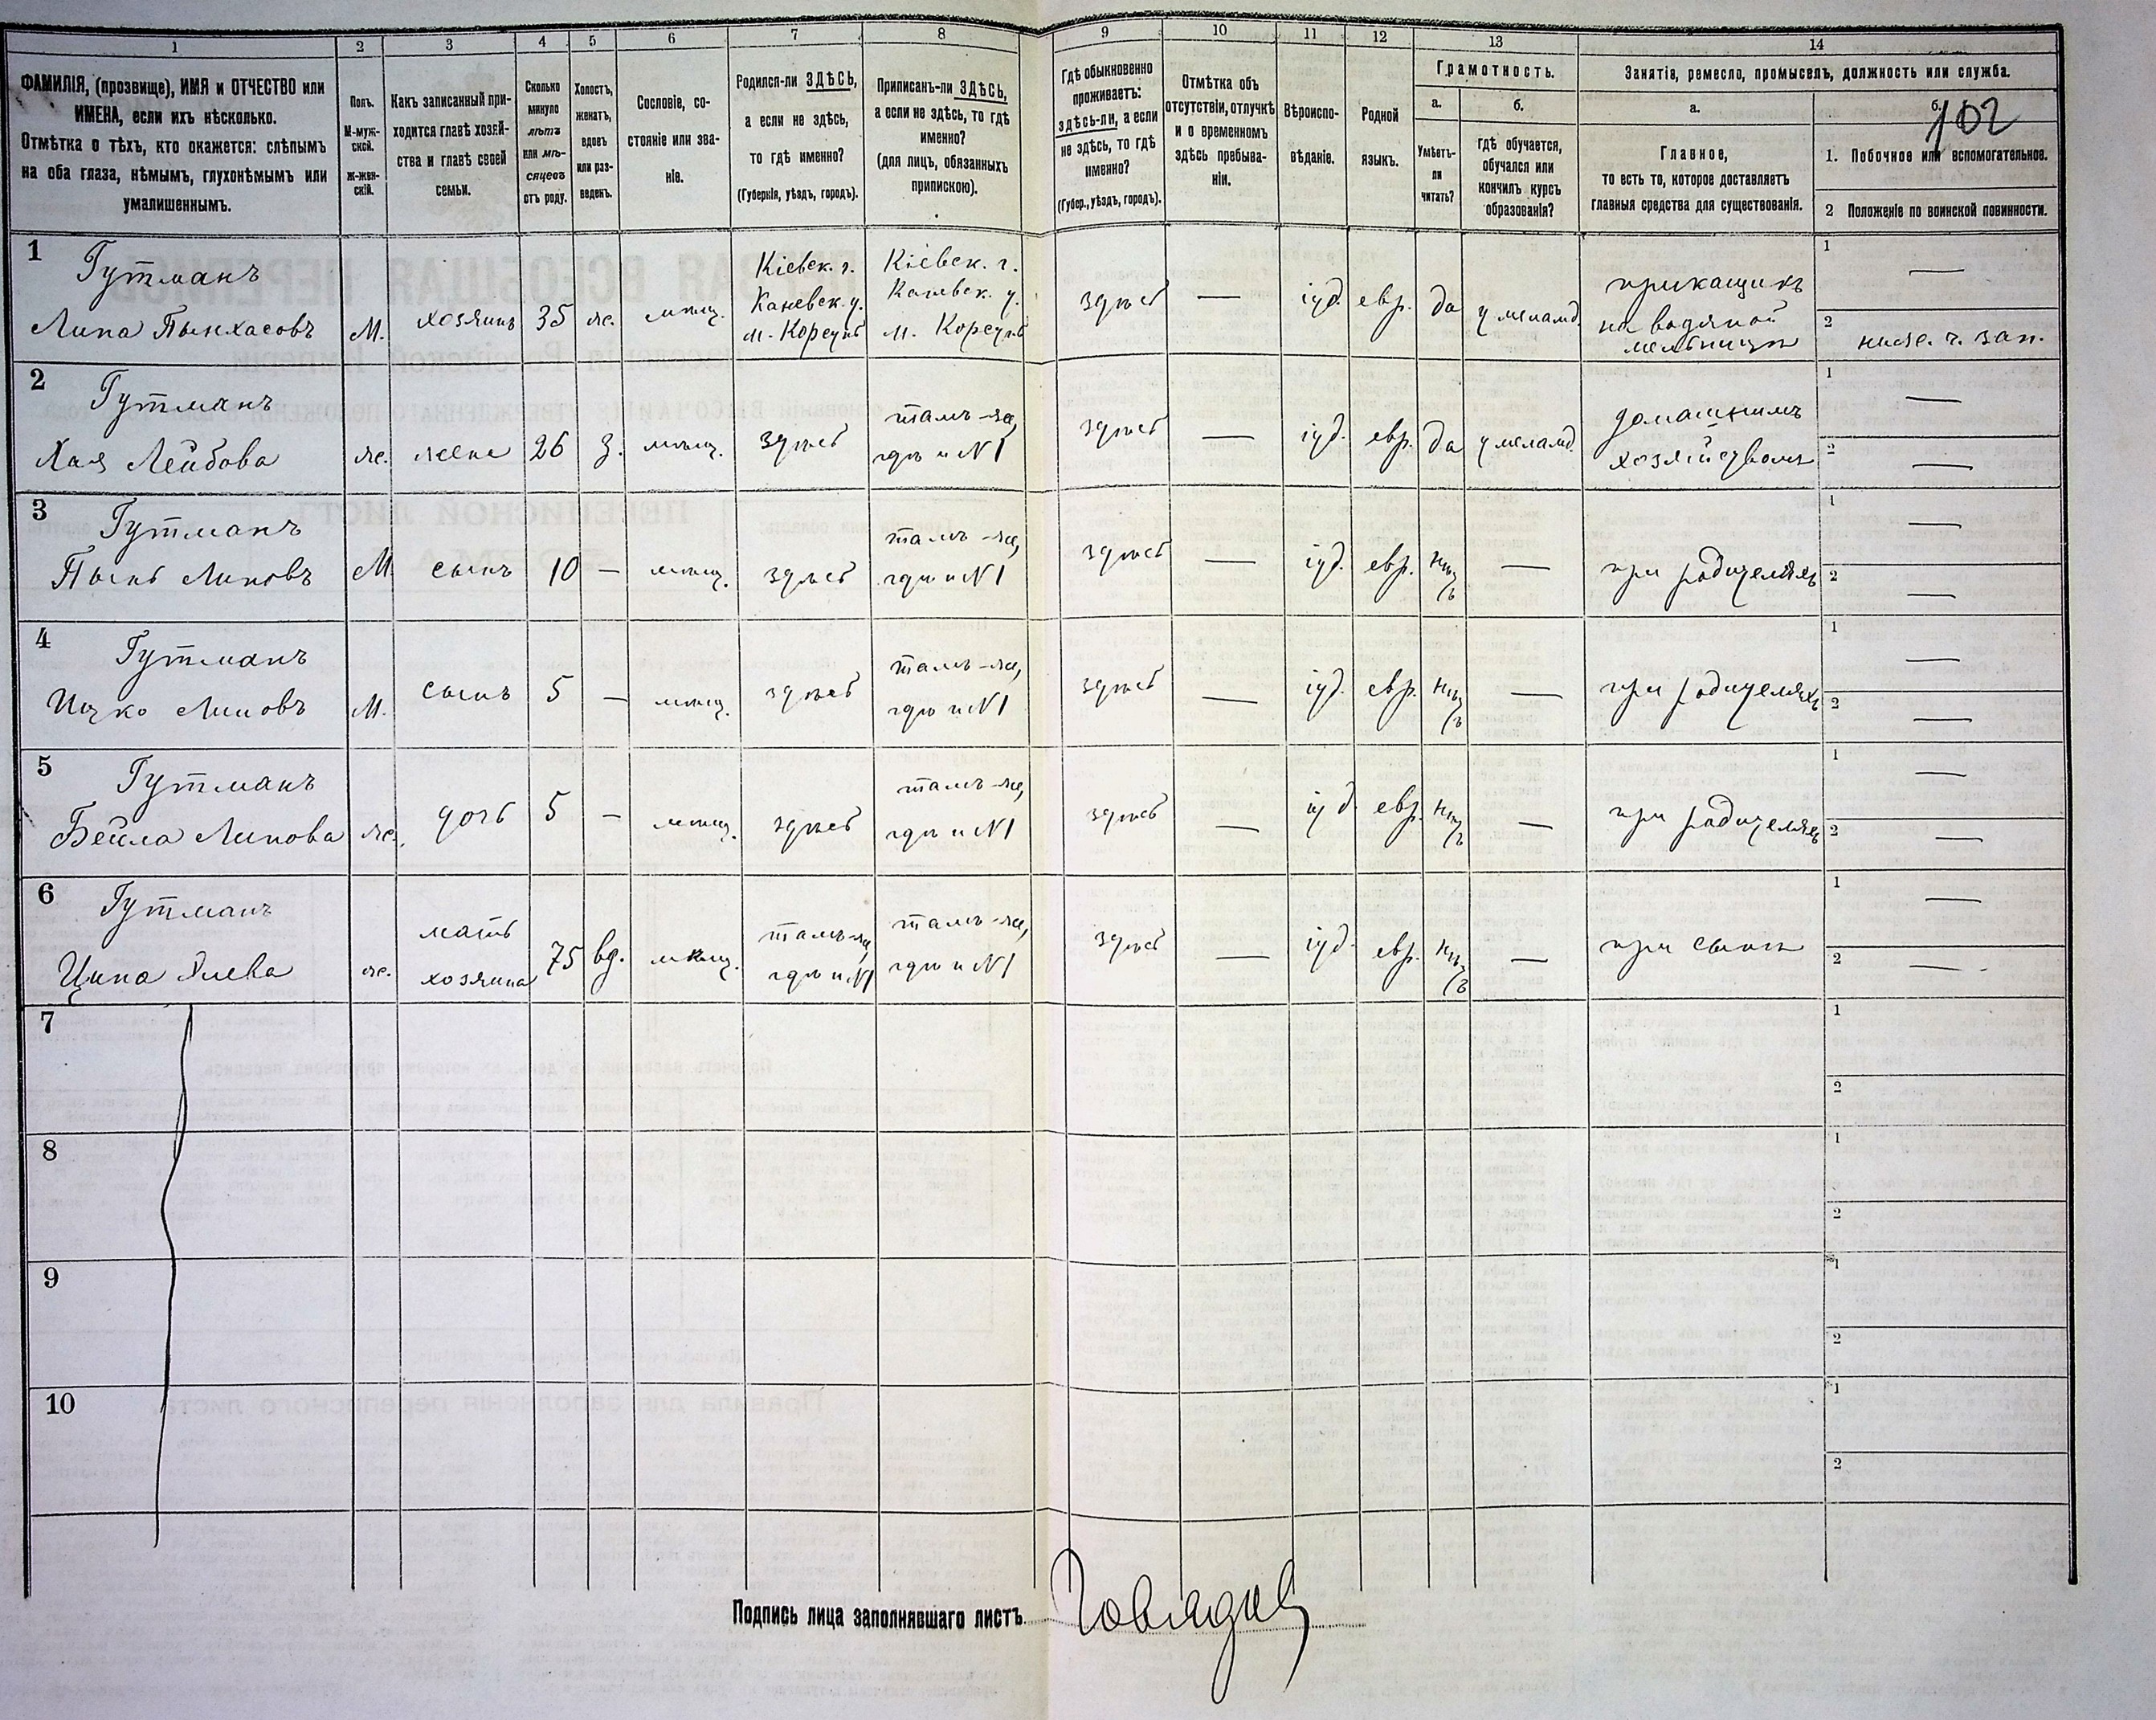 1 2 3 4 5 6 7 8 9 10 11 12 13 14
ФАМИЛІЯ, (прозвище), ИМЯ и ОТЧЕСТВО или
ИМЕНА, если ихъ нѣсколько.
Отмѣтка о тѣхъ, кто окажется: слѣпымъ
на оба глаза, нѣмымъ, глухонѣмымъ или
умалишеннымъ.
Полъ.
М-муж-
ской.
ж-жен-
скій.
Какъ записанный при-
ходится главѣ хозяй-
ства и главѣ своей
семьи.
Сколько
минуло
лѣтъ
или мѣ-
сяцевъ
отъ роду.
Холостъ,
женатъ,
вдовъ
или раз-
веденъ.
Сословіе, со-
стояніе или зва-
ніе.
Родился-ли ЗДѢСЬ,
а если не здѣсь,
то гдѣ именно?
(Губернія, уѣздъ, городъ).
Приписанъ-ли ЗДѢСЬ,
а если не здѣсь, то гдѣ
именно?
(для лицъ, обязанныхъ
припискою).
Гдѣ обыкновенно
проживаетъ:
здѣсь-ли, а если
не здѣсь, то гдѣ
именно?
(Губер., уѣздъ, городъ).
Отмѣтка объ
отсутствіи, отлучкѣ
и о временномъ
здѣсь пребыва-
ніи.
Вѣроиспо-
вѣданіе.
Родной
языкъ.
Грамотность.
а.
Умѣетъ-
ли
читать?
б.
гдѣ обучается,
обучался или
кончилъ курсъ
образованія?
Занятіе, ремесло, промыселъ, должность или служба.
а.
Главное,
то есть то, которое доставляетъ
главныя средства для существованія.
б.
102
1. Побочное или вспомогательное.
2 Положеніе по воинской повинности.
1
Гутманъ
Липа Пынхасовъ
М.
хозяинъ
35
ж.
мѣщ.
Кіевск. г.
Каневск. у.
м. Корсунь
Кіевск. г.
Каневск. у.
м. Корсунь
здѣсь
—
іуд.
евр.
да
у меламд.
прикащикъ
на водяной
мельницѣ
1
—
2
ниж. ч. зап.
2
Гутманъ
Хая Лейбова
ж.
жена
26
з.
мѣщ.
здѣсь
тамъ-же,
гдѣ и №1
здѣсь
—
іуд.
евр.
да
у меламд.
домашнимъ
хозяйствомъ
1
—
2
—
3
Гутманъ
Пынь Липовъ
М
сынъ
10
—
мѣщ.
здѣсь
тамъ-же,
гдѣ и №1
здѣсь
—
іуд.
евр.
нѣтъ
—
при родителяхъ
1
—
2
—
4
Гутманъ
Ицко Липовъ
М.
сынъ
5
—
мѣщ.
здѣсь
тамъ-же,
гдѣ и №1
здѣсь
—
іуд.
евр.
нѣтъ
—
при родителяхъ
1
—
2
—
5
Гутманъ
Бейла Липова
ж.
дочь
5
—
мѣщ.
здѣсь
тамъ-же,
гдѣ и №1
здѣсь
—
іуд.
евр.
нѣтъ
—
при родителяхъ
1
—
2
—
6
Гутманъ
Ципа
ж.
мать
хозяина
75
вд.
мѣщ.
тамъ-же,
гдѣ и №1
тамъ-же,
гдѣ и №1
здѣсь
—
іуд.
евр.
нѣтъ
—
при сынѣ
1
—
2
—
7
1
2
8
1
2
9
1
2
10
1
2
Подпись лица заполнявшаго листъ.